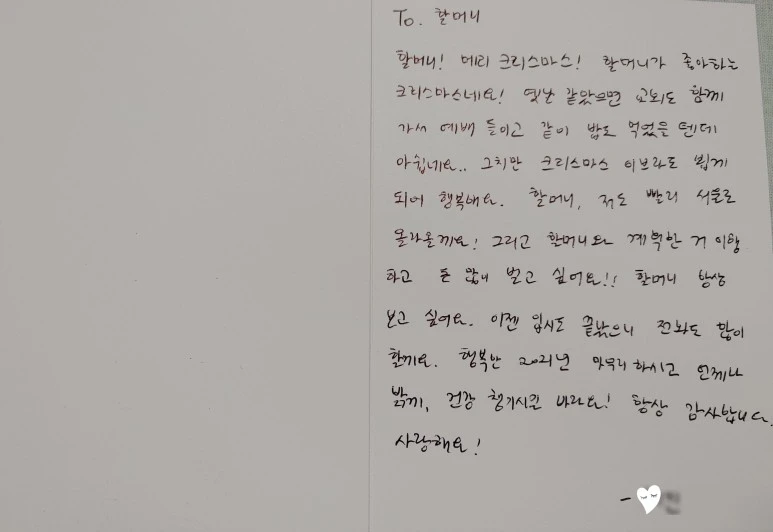 To. 할머니
할머니! 메리 크리스마스! 할머니가 좋아하는
크리스마스네요! 옛날 같았으면 교회도 함께
가서 예배 들이고 같이 밥도 먹었을 텐데
아쉽네요.. 그치만 크리스마스 이브라도 뵙게
되어 행복해요. 할머니, 저도 빨리 서울로
올라올께요! 그리고 할머니와 계획한 거 이행
하고 돈 많이 벌고 싶어요!! 할머니 항상
보고 싶어요. 이젠 입시도 끝났으니 전화도 많이
할께요. 행복한 2021년 마무리 하시고 언제나
밝게, 건강 챙기시길 바라요! 항상 감사합니다.
사랑해요!